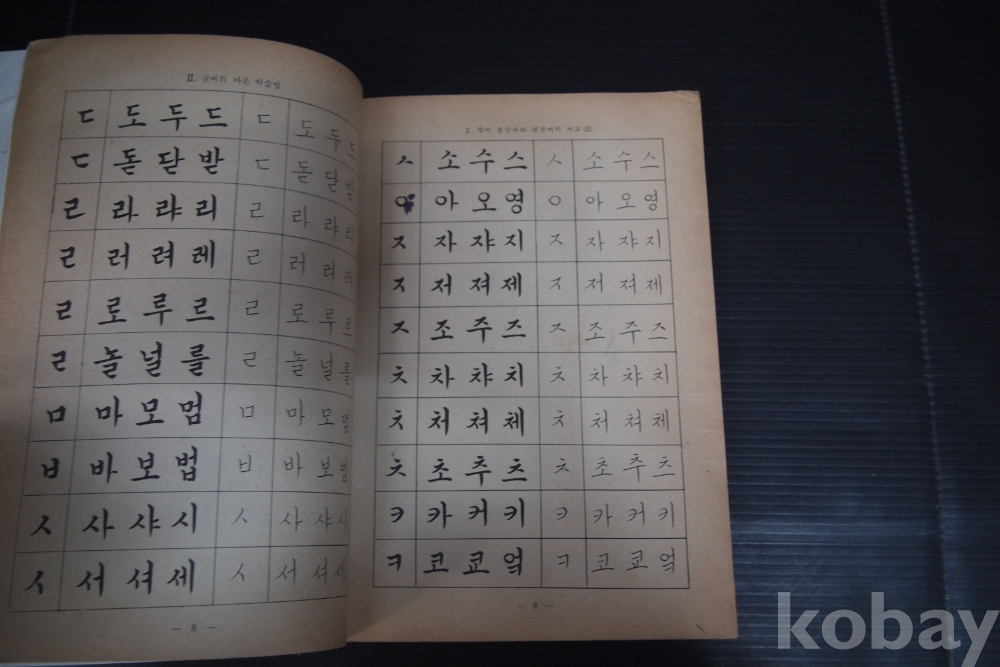 II. 글씨의 바른 학습법
ㄷ 도 두 드 ㄷ 도 두 드
ㄷ 돋 닫 받 ㄷ 돋 닫 받
ㄹ 라 랴 리 ㄹ 라 랴 리
ㄹ 러 려 레 ㄹ 러 려 레
ㄹ 로 루 르 ㄹ 로 루 르
ㄹ 놀 널 를 ㄹ 놀 널 를
ㅁ 마 모 멈 ㅁ 마 모 멈
ㅂ 바 보 법 ㅂ 바 보 법
ㅅ 사 샤 시 ㅅ 사 샤 시
ㅅ 서 셔 세 ㅅ 서 셔 세
— 8 —
2. 붓글씨와 펜글씨의 비교(2)
ㅅ 소 수 스 ㅅ 소 수 스
ㅇ 아 오 영 ㅇ 아 오 영
ㅈ 자 쟈 지 ㅈ 자 쟈 지
ㅈ 저 져 제 ㅈ 저 져 제
ㅈ 조 주 즈 ㅈ 조 주 즈
ㅊ 차 챠 치 ㅊ 차 챠 치
ㅊ 처 쳐 체 ㅊ 처 쳐 체
ㅊ 초 추 츠 ㅊ 초 추 츠
ㅋ 카 커 키 ㅋ 카 커 키
ㅋ 코 쿄 엌 ㅋ 코 쿄 엌
— 9 —
kobay